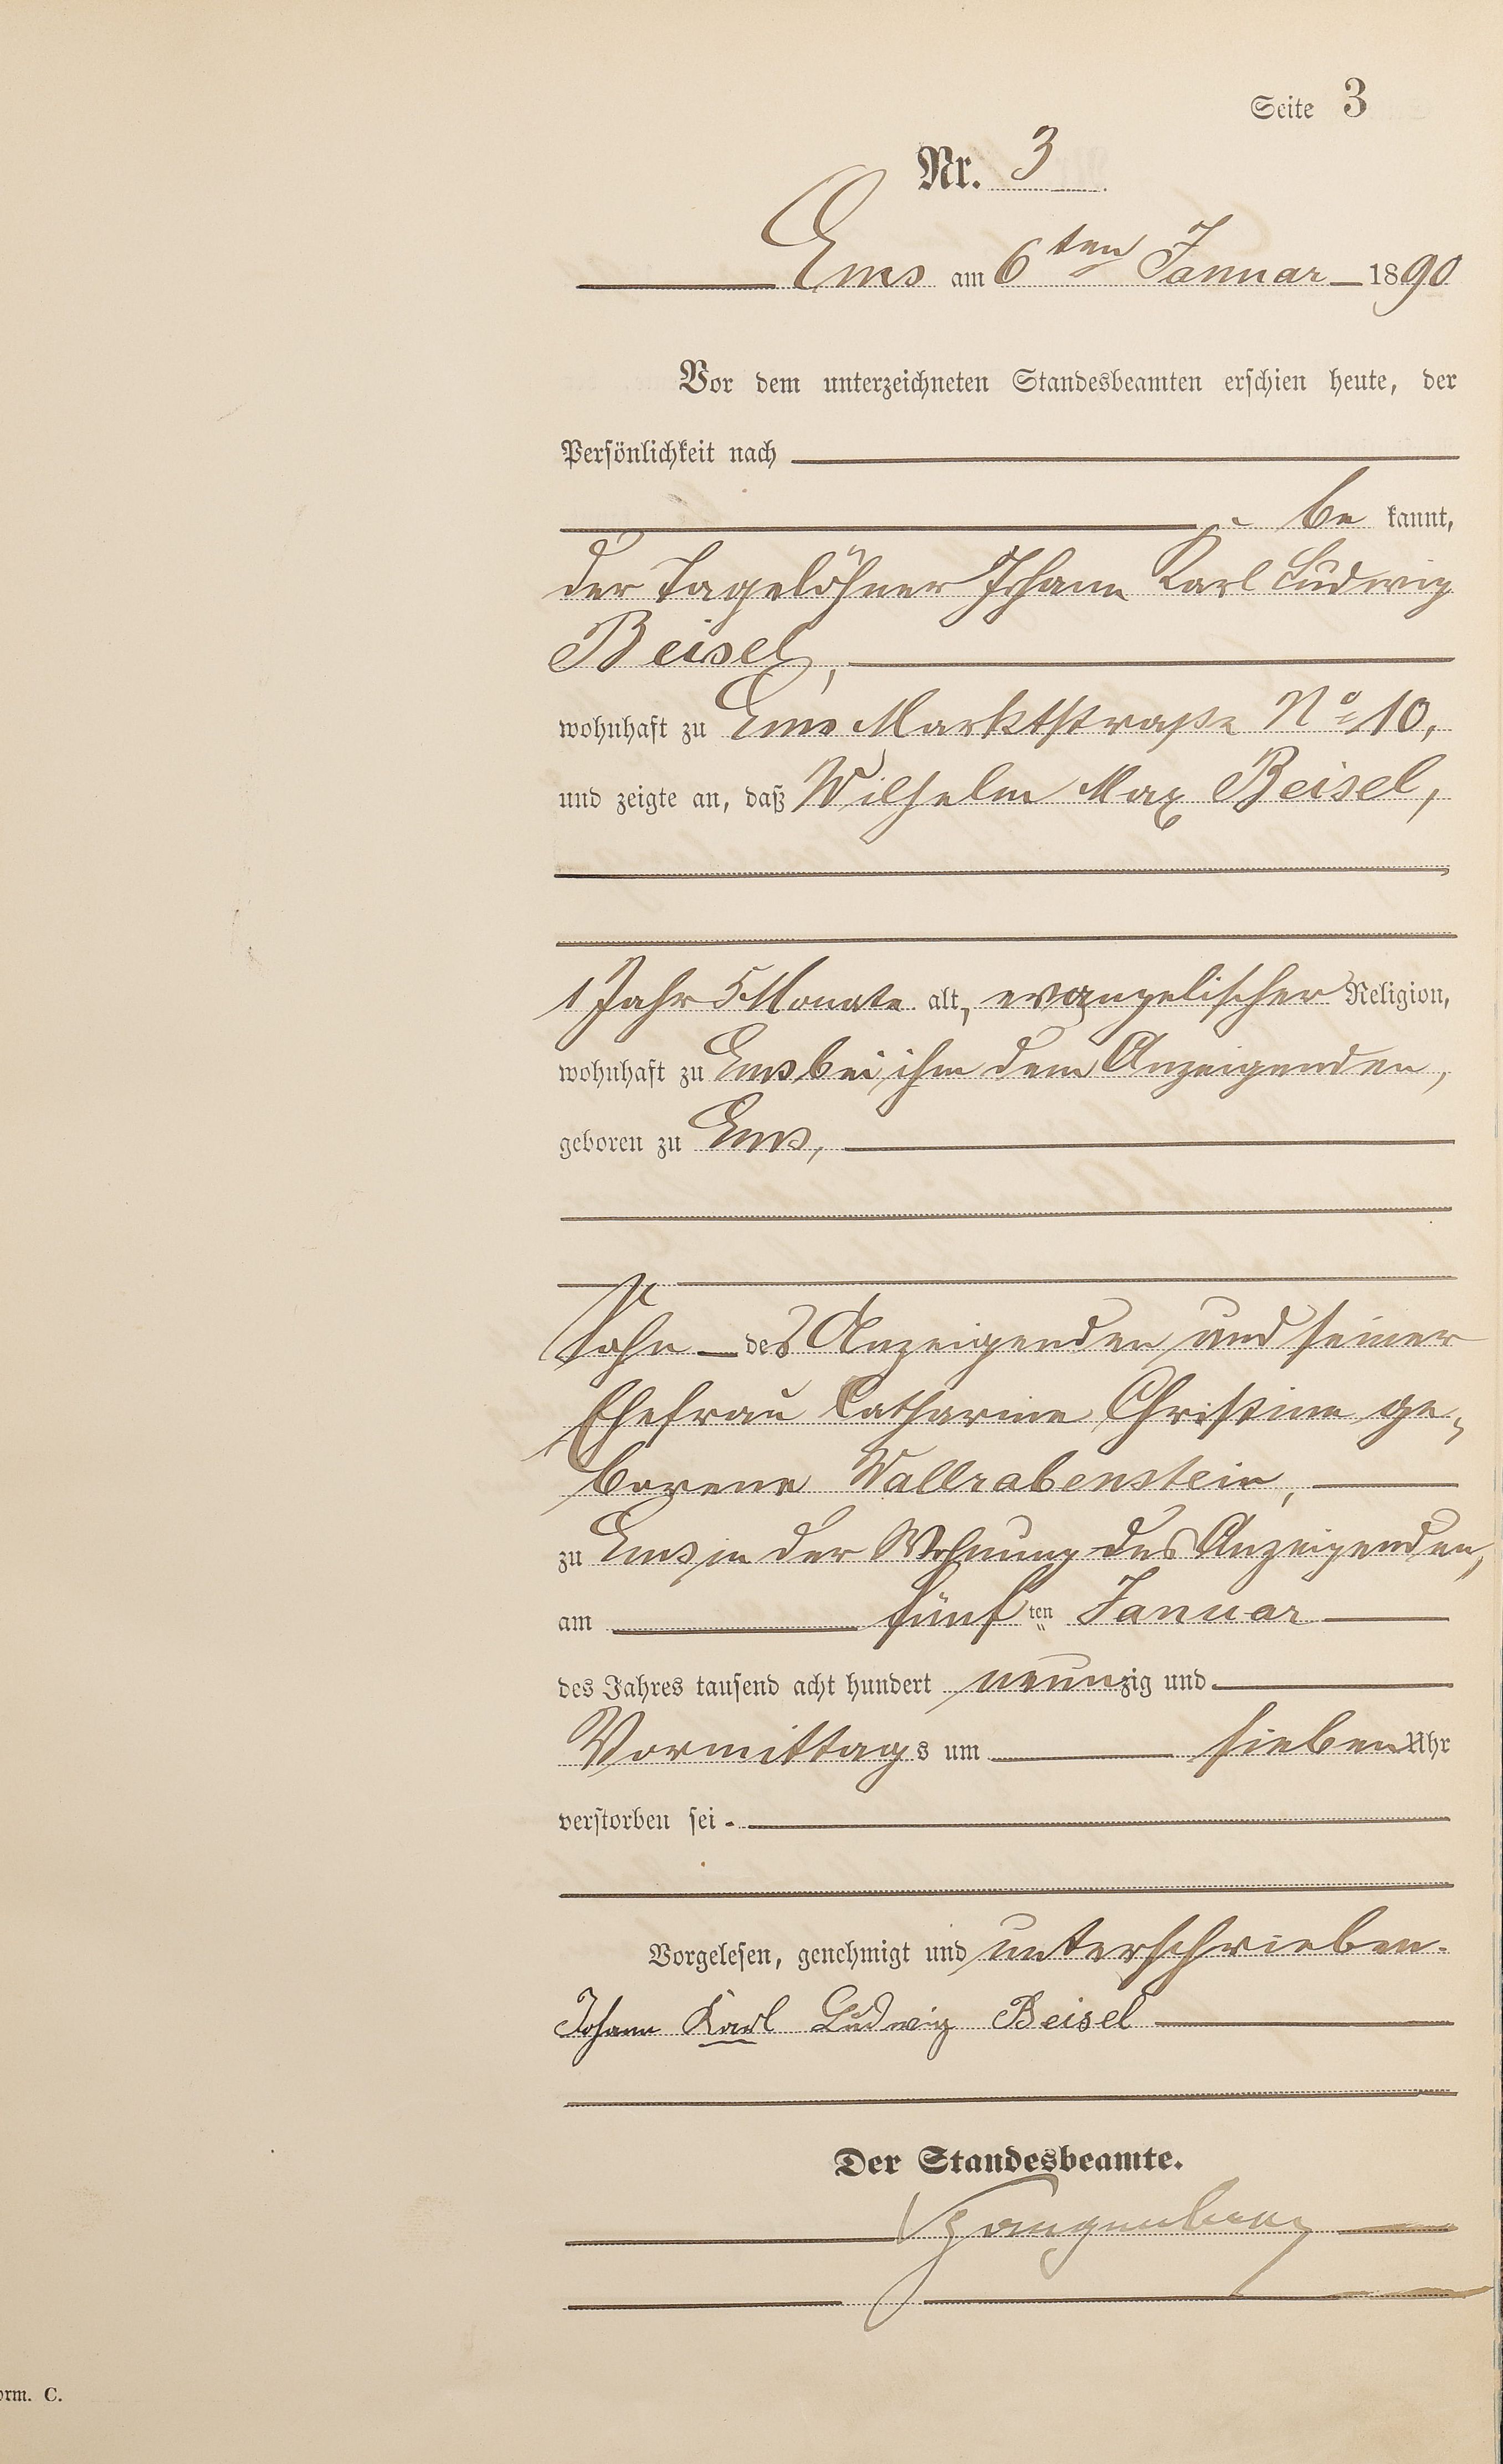 Seite 3
Nr. 3
Ems am 6ten Januar 1890
Vor dem unterzeichneten Standesbeamten erschien heute, der
Persönlichkeit nach
be kannt,
der Tagelöhner Johann Karl Ludwig
Beisel,
wohnhaft zu Ems Marktstraße No 10,
und zeigte an, daß Wilhelm Max Beisel,
1 Jahr 5 Monate alt, evangelischer Religion,
wohnhaft zu Ems bei ihm dem Anzeigenden,
geboren zu Ems,
Sohn des Anzeigenden und seiner
Ehefrau Catharine Christine ge-
borene Wallrabenstein,
zu Ems in der Wohnung des Anzeigenden,
am fünften Januar
des Jahres tausend acht hundert neunzig und
Vormittags um sieben Uhr
verstorben sei.
Vorgelesen, genehmigt und unterschrieben.
Johann Karl Ludwig Beisel
Der Standesbeamte.
orm. C.